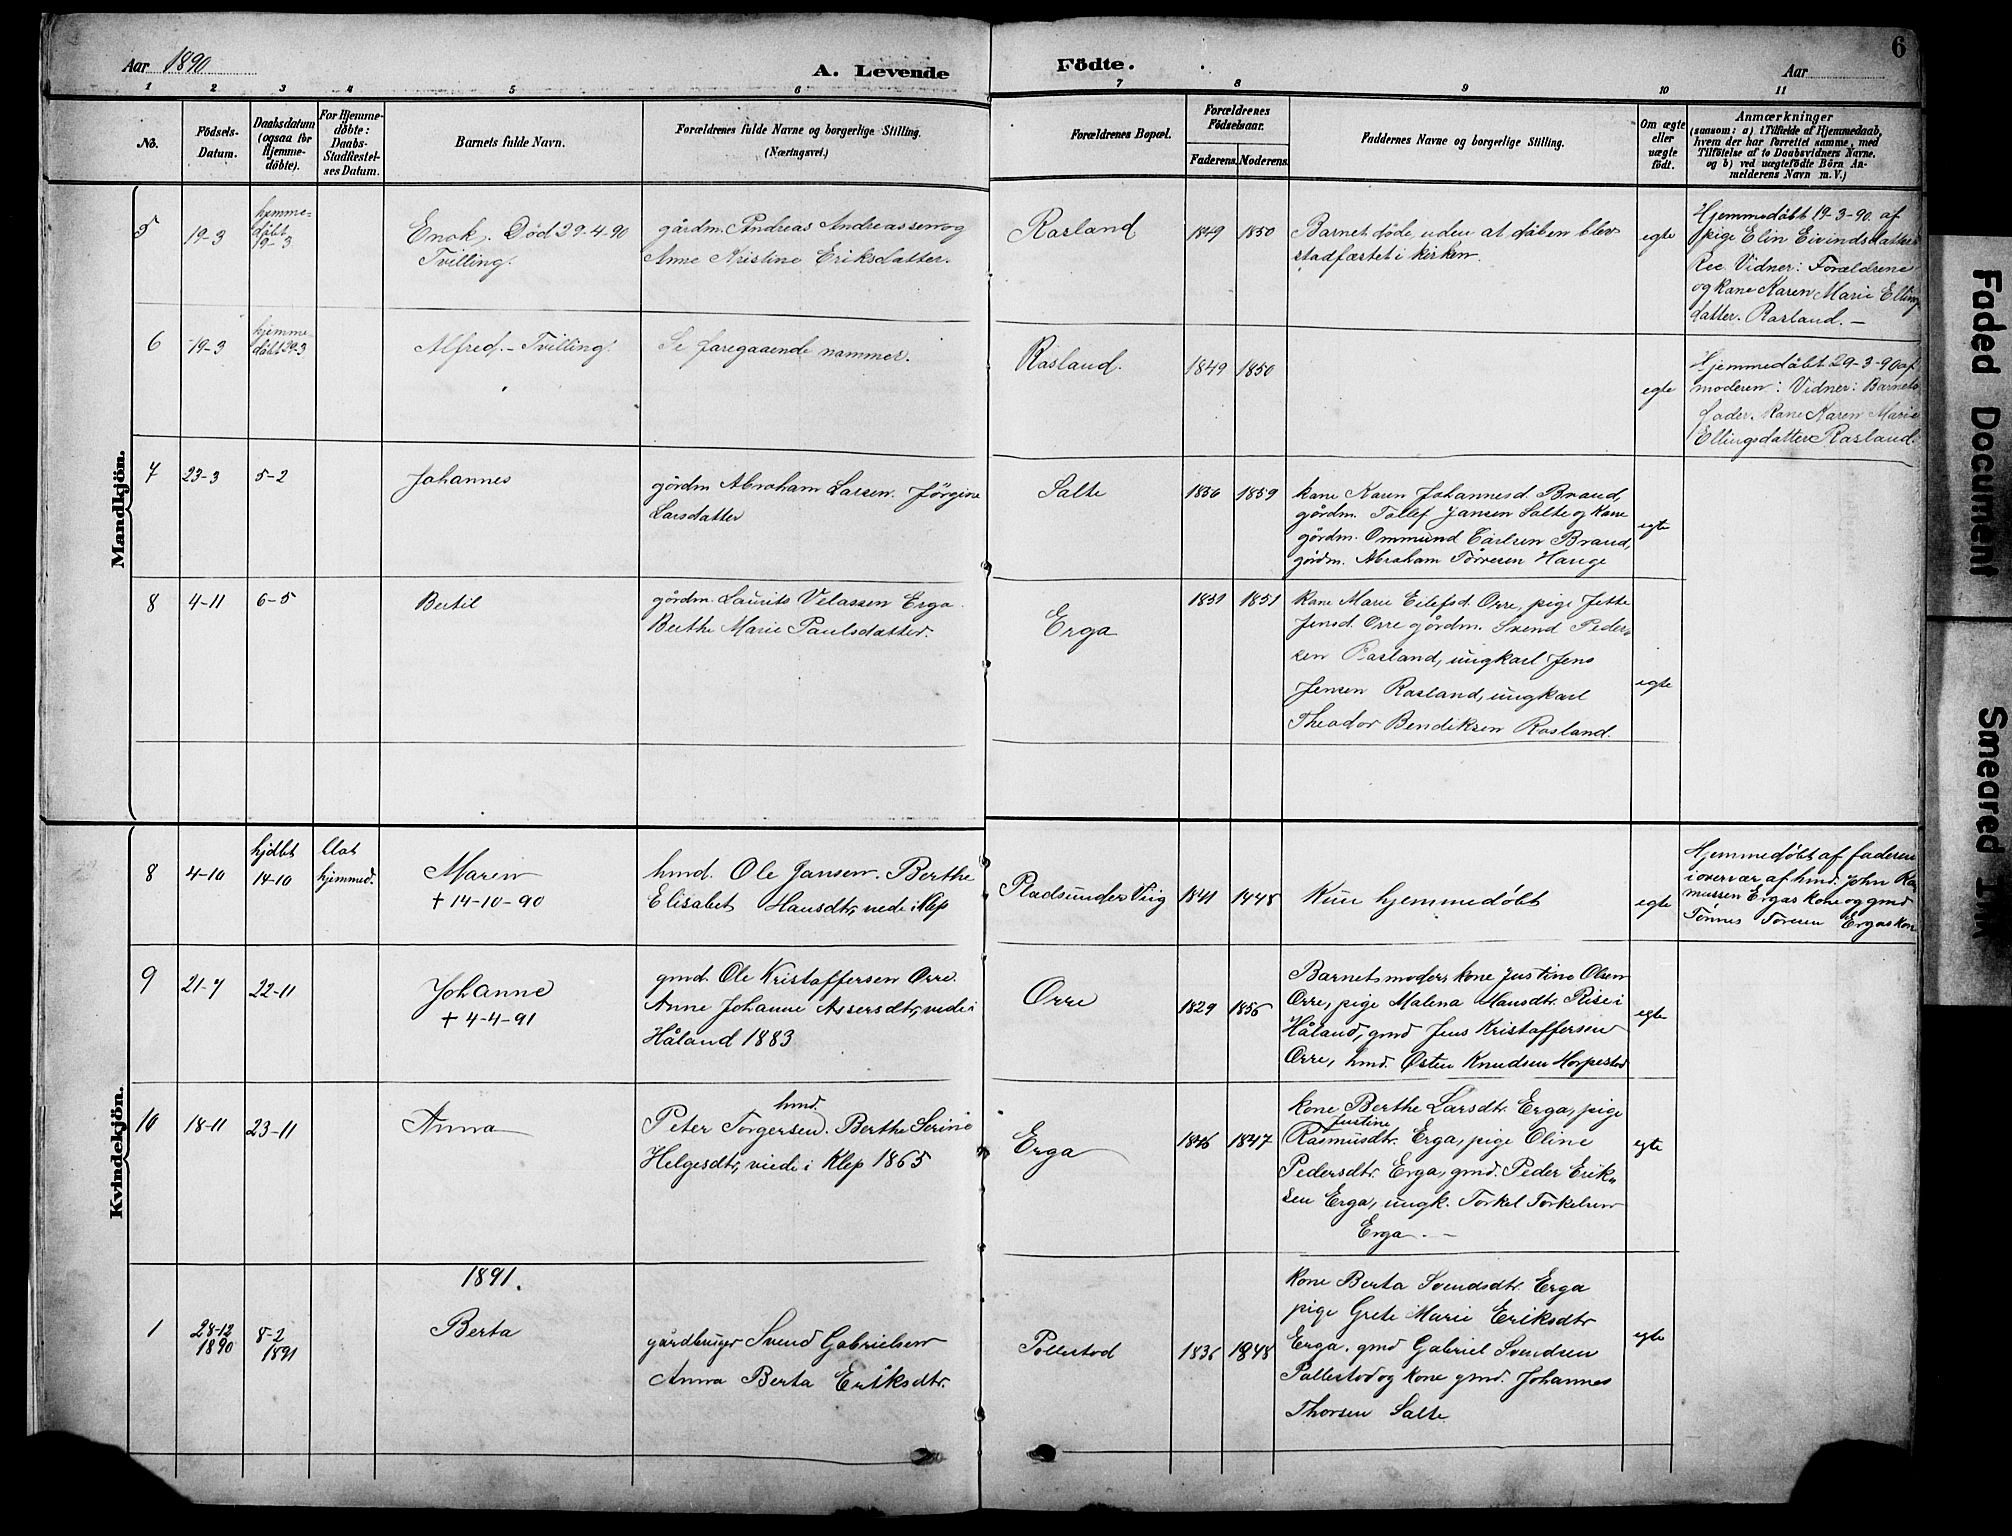 Aar 1890
A. Levende
Födte.
Aar
6
1 2 3 4 5 6 7 8 9 10 11
No.
Födsels-
Datum.
Daabsdatum
(ogsaa for
Hjemme-
döbte).
For Hjemme-
döbte:
Daabs-
Stadfæstel-
ses Datum.
Barnets fulde Navn.
Forældrenes fulde Navne og borgerlige Stilling.
(Næringsvei.)
Forældrenes Bopæl.
Forældrenes
Födselsaar.
Faderens. Moderens.
Faddernes Navne og borgerlige Stilling.
Om ægte
eller
uægte
födt.
Anmærkninger
(saasom: a) i Tilfælde af Hjemmedaab,
hvem der har forrettet samme, med
Tilföielse af to Daabsvidners Navne,
og b) ved uægtefödte Börn An-
melderens Navn m. V.)
Mandkjön.
5
19-3
hjemme-
døbt
19-3
Enok. Død 29-4-90
Tvilling.
gårdm. Andreas Andreassen og
Anne Kristine Eriksdatter.
Rasland
1849 1850
Barnet døde uden at dåben blev
stadfæstet i kirken.
egte
Hjemmedøbt 19-3-90 af
pige Elin Eivindsdatter
Ree. Vidner: Forældrene
og kane Karen Marie Elling
datter. Rasland. –
6
19-3
hjemme-
døbt 29-3
Alfred. – Tvilling.
Se foregaaende nammer.
Rasland.
1849 1850
egte
Hjemmedøbt 29-3-90 af
moderen: Vidner: Barnets
Fader. kane Karen Marie
Ellingsdatter Rasland.
7
23-3
5-2
Johannes
gårdm Abraham Larsen. Jørgine
Larsdatter
Salte
1856 1859
kane Karen Johannesd. Braud,
gårdm. Tollef Jansen Salte og kane
gårdm. Ommund Carlsen Braud,
gårdm. Abraham Tørresen Hauge
egte
8
4-11
6-5
Bertil
gårdm. Laurits Velassen Erga.
Berthe Marie Paulsdatter.
Erga
1851 1851
kane Marie Eilefsd. Orre, pige Jette
Jensd. Orre gårdm. Svend Peder-
sen Rasland, ungkarl Jens
Jensen Rasland, ungkarl
Theodor Bendiksen Rasland.
egte
Kvindekjön.
8
4-10
hjdbt
14-10
blot
hjemmed.
Maren
+ 14-10-90
hmd. Ole Jansen. Berthe
Elisabet Hansdtr, viede i Klep
Pladsunder Viig
1841 1848
Kun hjemmedøbt
egte
Hjemmedøbt af faderen
i overvær af hmd. John Ras
mussen Ergas kone og gmd
Tønnes Toresen Ergas kone
9
21-7
22-11
Johanne
+ 4-4-91
gmd. Ole Kristaffersen Orre.
Anne Johanne Assersdtr, viede i
Håland 1883
Orre
1829 1856
Barnets moder, kone Justine Olsen
Orre, pige Malena Hansdtr. Rise i
Håland, gmd Jens Kristaffersen
Orre, hmd. Østen Knudsen Horpestad
egte
10
18-11
23-11
Anna
hmd.
Peter Torgersen. Berthe Serine
Helgesdtr, viede i Klep 1865
Erga
1846 1847
kone Berthe Larsdtr. Erga, pige
Justine
Rasmusdtr. Erga, pige Oline
Pedersdtr. Erga, gmd. Peder Erik-
sen Erga, ungk. Torkel Torkelsen
Erga. –
egte
1891.
1
28-12
1890
8-2
1891
Berta
gårdbruger Svend Gabrielsen
Anna Berta Eriksdtr.
Pollestad
1836 1848
kone Berta Svendsdtr. Erga
pige Grete Marie Eriksdtr
Erga. gmd Gabriel Svendsen
Pallestad og kone gmd. Johannes
Thorsen Salte
egte
Faded Document
Smeared Ink